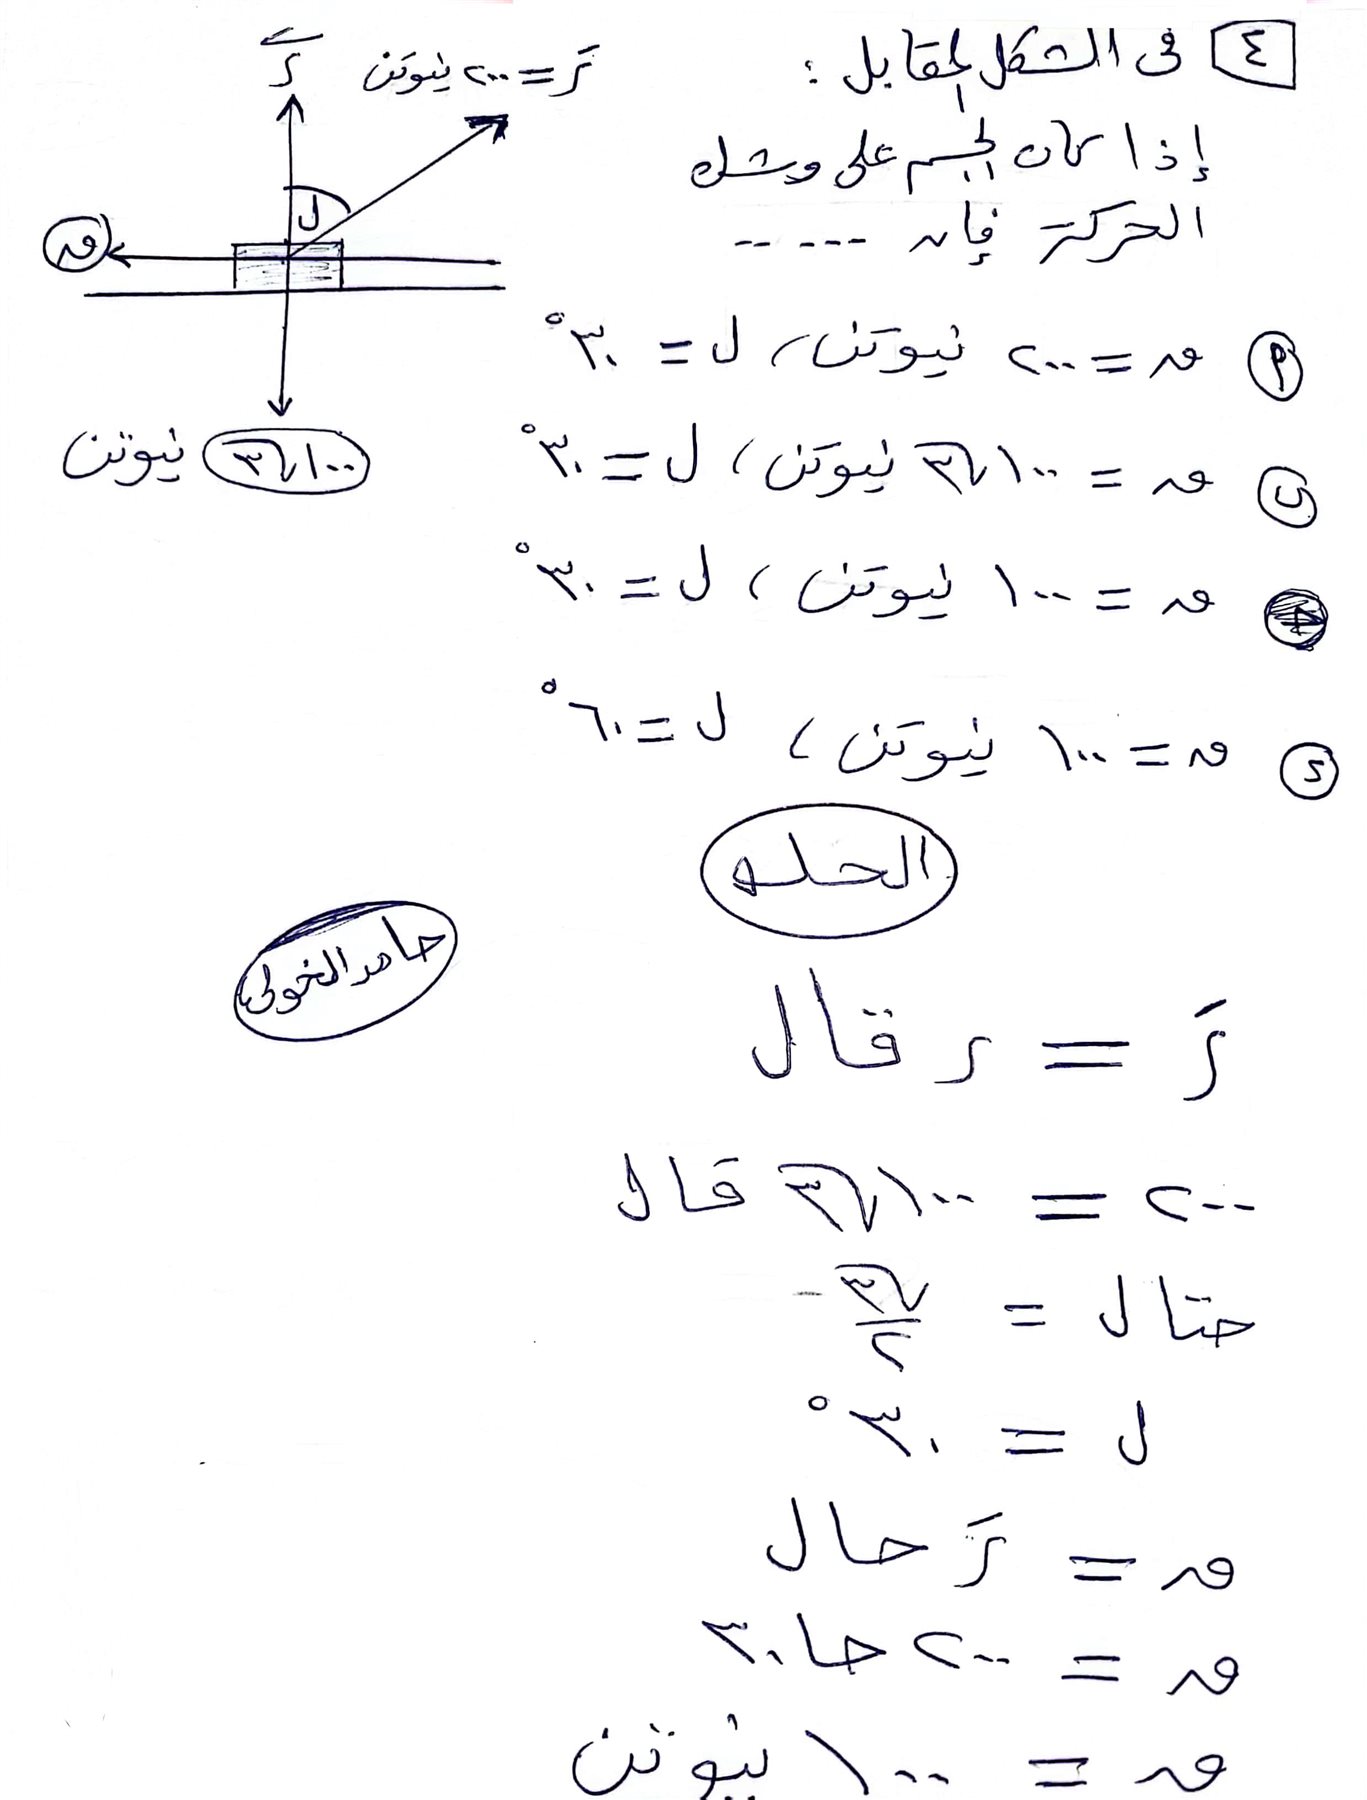 ٤ فى الشكل المقابل :
إذا كان الجسم على وشك
الحركة فإن ------
ر
رَ = ٢٠٠ نيوتن
ل
ق
١٠٠√٣ نيوتن
أ ق = ٢٠٠ نيوتن ، ل = ٣٠°
ب ق = ١٠٠√٣ نيوتن ، ل = ٣٠°
ج ق = ١٠٠ نيوتن ، ل = ٣٠°
د ق = ١٠٠ نيوتن ، ل = ٦٠°
الحل
حامد الخولى
رَ = ر قال
٢٠٠ = ١٠٠√٣ قال
حتا ل = √٣/٢
ل = ٣٠°
ق = رَ حال
ق = ٢٠٠ حا٣٠
ق = ١٠٠ نيوتن